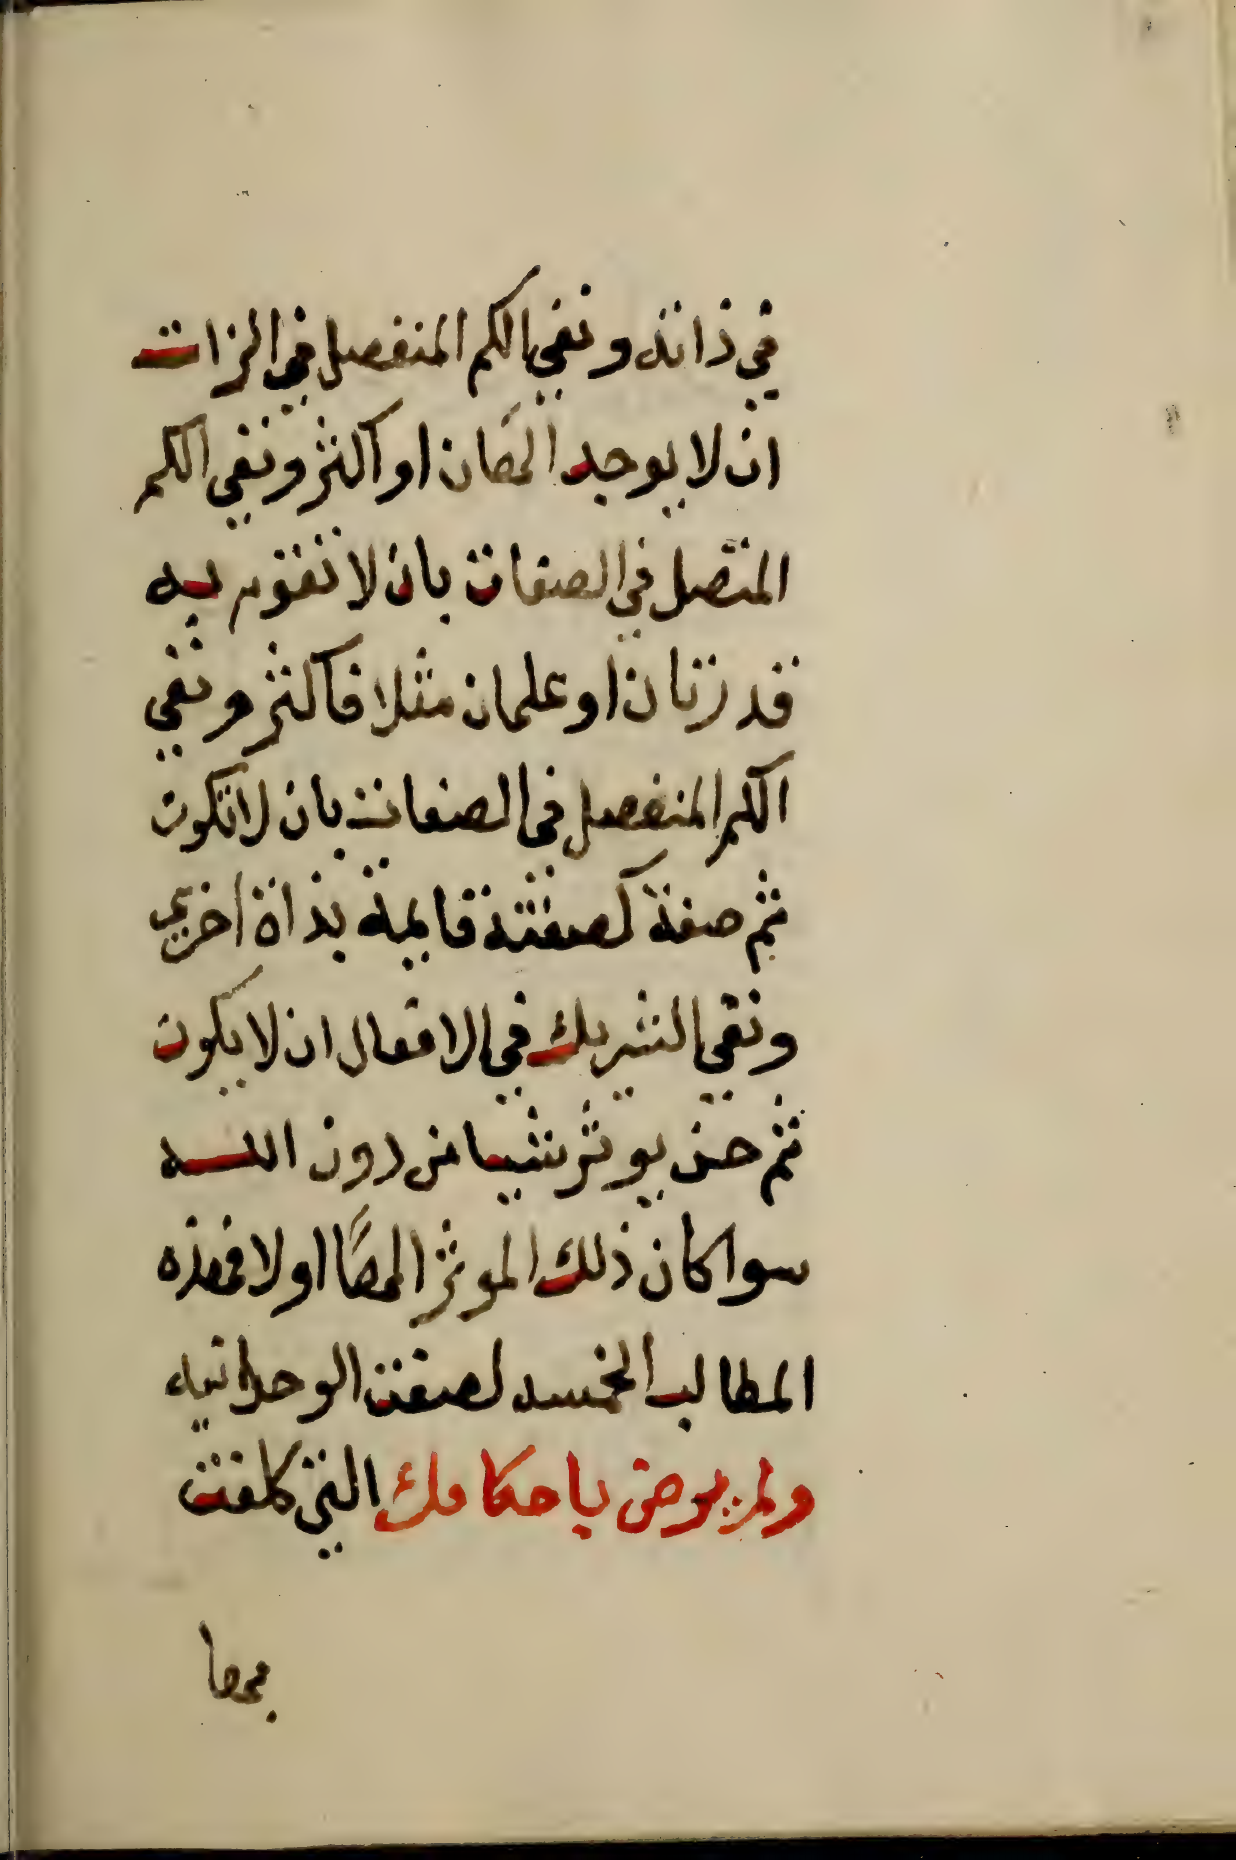 في ذاته ونفي الكم المنفصل في الزات
ان لا يوجد الهان او اكثر ونفي الكم
المتصل في الصفات بان لا تقوم به
قدرتان او علمان مثلا فاكثر ونفي
الكم المنفصل في الصفات بان لا تكون
ثم صفة كصفته قايمة بذاة اخري
ونفي الشريك في الافعال ان لا يكون
ثم من يوثر شيا من دون الله
سوا كان ذلك الموثر الها او لا فهذه
المطالب الخمسه لصفت الوحدانيه
ولم يرض باحكامك التي كلفت
بها